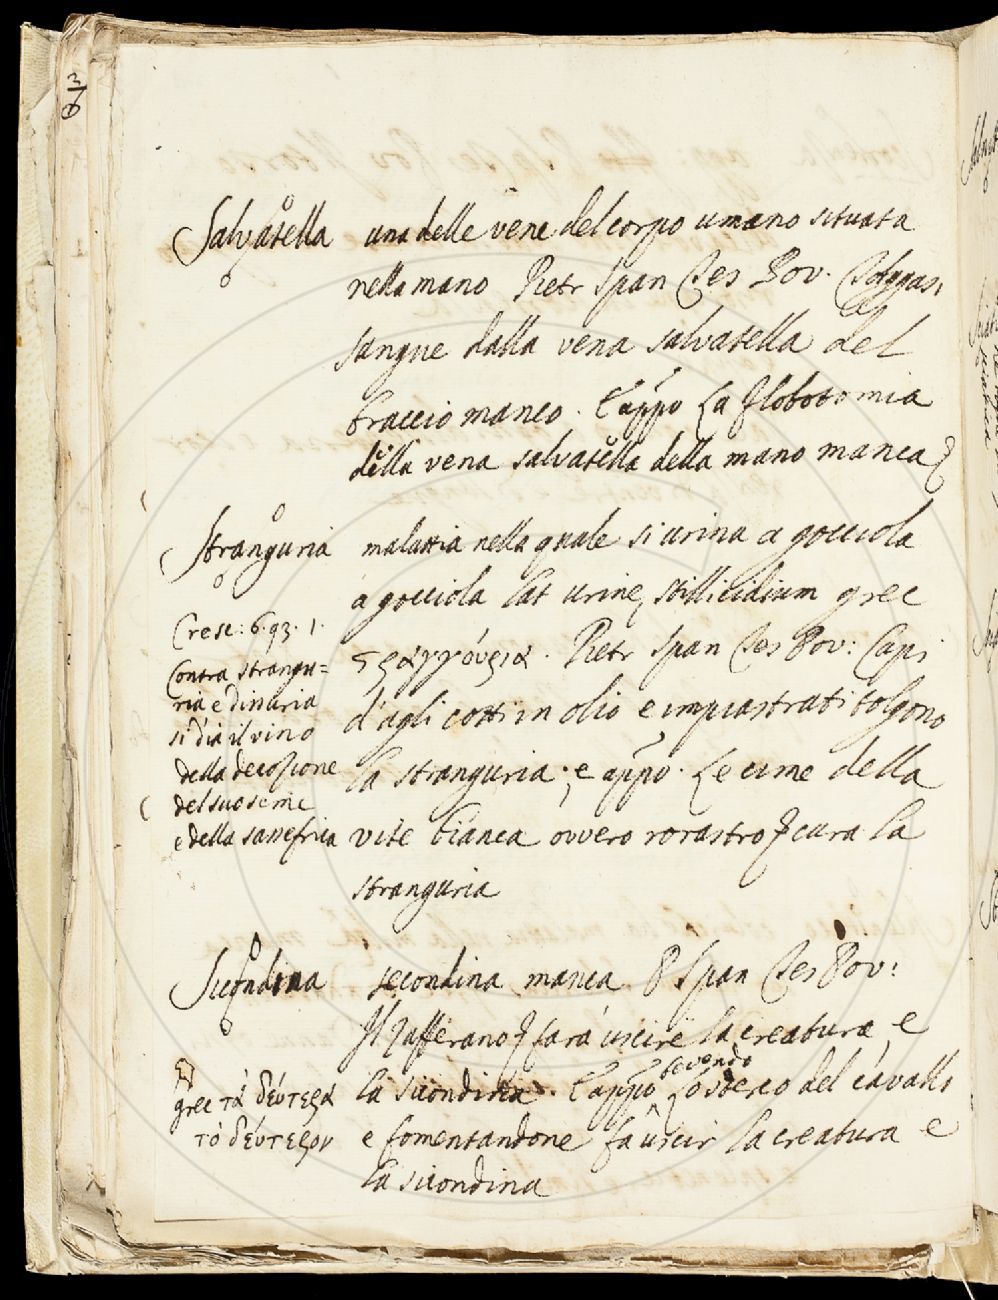 3
6
Salvatella una delle vene del corpo umano situata
nella mano Pietr Span Tes Pov. Tolggasi
sangue dalla vena salvatella del
braccio manco. E appo La flobotomia
della vena salvatella della mano manca
Stranguria malattia nella quale si urina a gocciola
a gocciola lat urinę stillicidium grec
ςραγγούρια. Pietr Span Tes Pov: Capi
d'agli cotti in olio e impiastrati tolgono
la stranguria. e appo. Le cime della
vite bianca ovvero rorastro cura la
stranguria
Cresc: 6. 93. 1.
Contra strangu=
ria e dissuria
si dia il vino
della decozione
del suo seme
e della sassefrica
Secondina secondina manca P Span Tes Pov:
Il Zafferano farà uscire la creatura e
la secondina. E appo Lo sterco del cavallo
bevendo
e fomentandone fa uscir la creatura e
la secondina
grec τὰ δέυτερα
τὸ δέυτερον